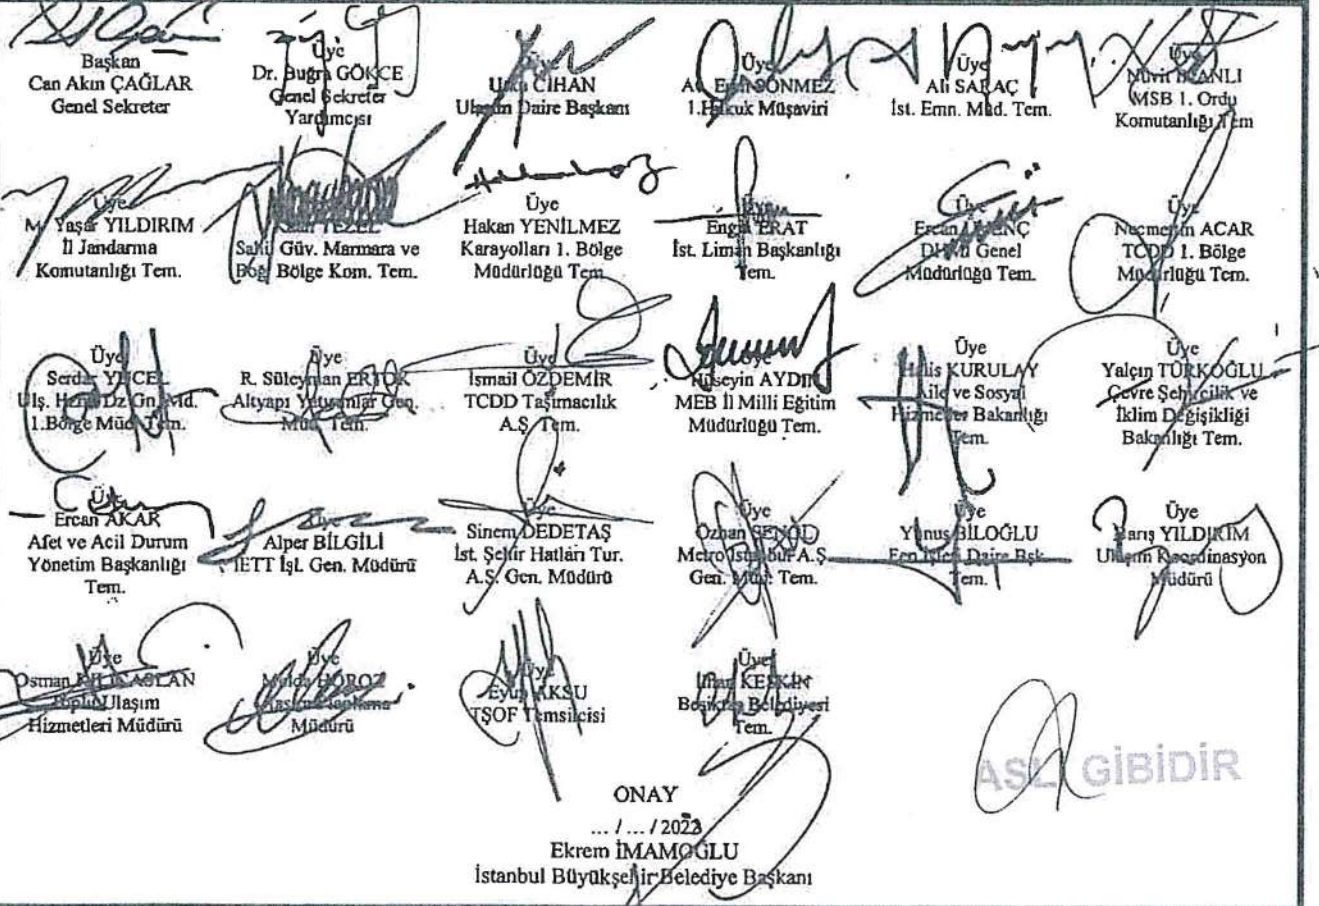 Başkan
Can Akın ÇAĞLAR
Genel Sekreter
Üye
Dr. Buğra GÖKÇE
Genel Sekreter
Yardımcısı
CİHAN
Ulaşım Daire Başkanı
Üye
SÖNMEZ
1.Hukuk Müşaviri
Üye
Ali SARAÇ
İst. Emn. Müd. Tem.
Üye
MSB 1. Ordu
Komutanlığı Tem
Üye
M. Yaşar YILDIRIM
İl Jandarma
Komutanlığı Tem.
Sahil Güv. Marmara ve
Boğ. Bölge Kom. Tem.
Üye
Hakan YENİLMEZ
Karayolları 1. Bölge
Müdürlüğü Tem.
Üye
Engin ERAT
İst. Liman Başkanlığı
Tem.
Üye
Ercan
Genel
Müdürlüğü Tem.
Üye
Necmettin ACAR
TCDD 1. Bölge
Müdürlüğü Tem.
Üye
Serdar YÜCEL
1.Bölge Müd. Tem.
Üye
R. Süleyman ERTOK
Altyapı Yatırımlar Gen.
Müd. Tem.
Üye
İsmail ÖZDEMİR
TCDD Taşımacılık
A.Ş. Tem.
Hüseyin AYDIN
MEB İl Milli Eğitim
Müdürlüğü Tem.
Üye
Halis KURULAY
Aile ve Sosyal
Hizmetler Bakanlığı
Tem.
Üye
Yalçın TÜRKOĞLU
Çevre Şehircilik ve
İklim Değişikliği
Bakanlığı Tem.
Üye
Ercan AKAR
Afet ve Acil Durum
Yönetim Başkanlığı
Tem.
Üye
Alper BİLGİLİ
İETT İşl. Gen. Müdürü
Üye
Sinem DEDETAŞ
İst. Şehir Hatları Tur.
A.Ş. Gen. Müdürü
Üye
Özhan ŞENOL
Metro İstanbul A.Ş.
Gen. Müd. Tem.
Üye
Yunus BİLOĞLU
Fen İşleri Daire Bşk.
Tem.
Üye
Barış YILDIRIM
Ulaşım Koordinasyon
Müdürü
Üye
Osman
Toplu Ulaşım
Hizmetleri Müdürü
Üye
HOROZ
Müdürü
Üye
Eyüp AKSU
TŞOF Temsilcisi
Üye
KESKİN
Beşiktaş Belediyesi
Tem.
ASLI GİBİDİR
ONAY
... / ... / 2022
Ekrem İMAMOĞLU
İstanbul Büyükşehir Belediye Başkanı